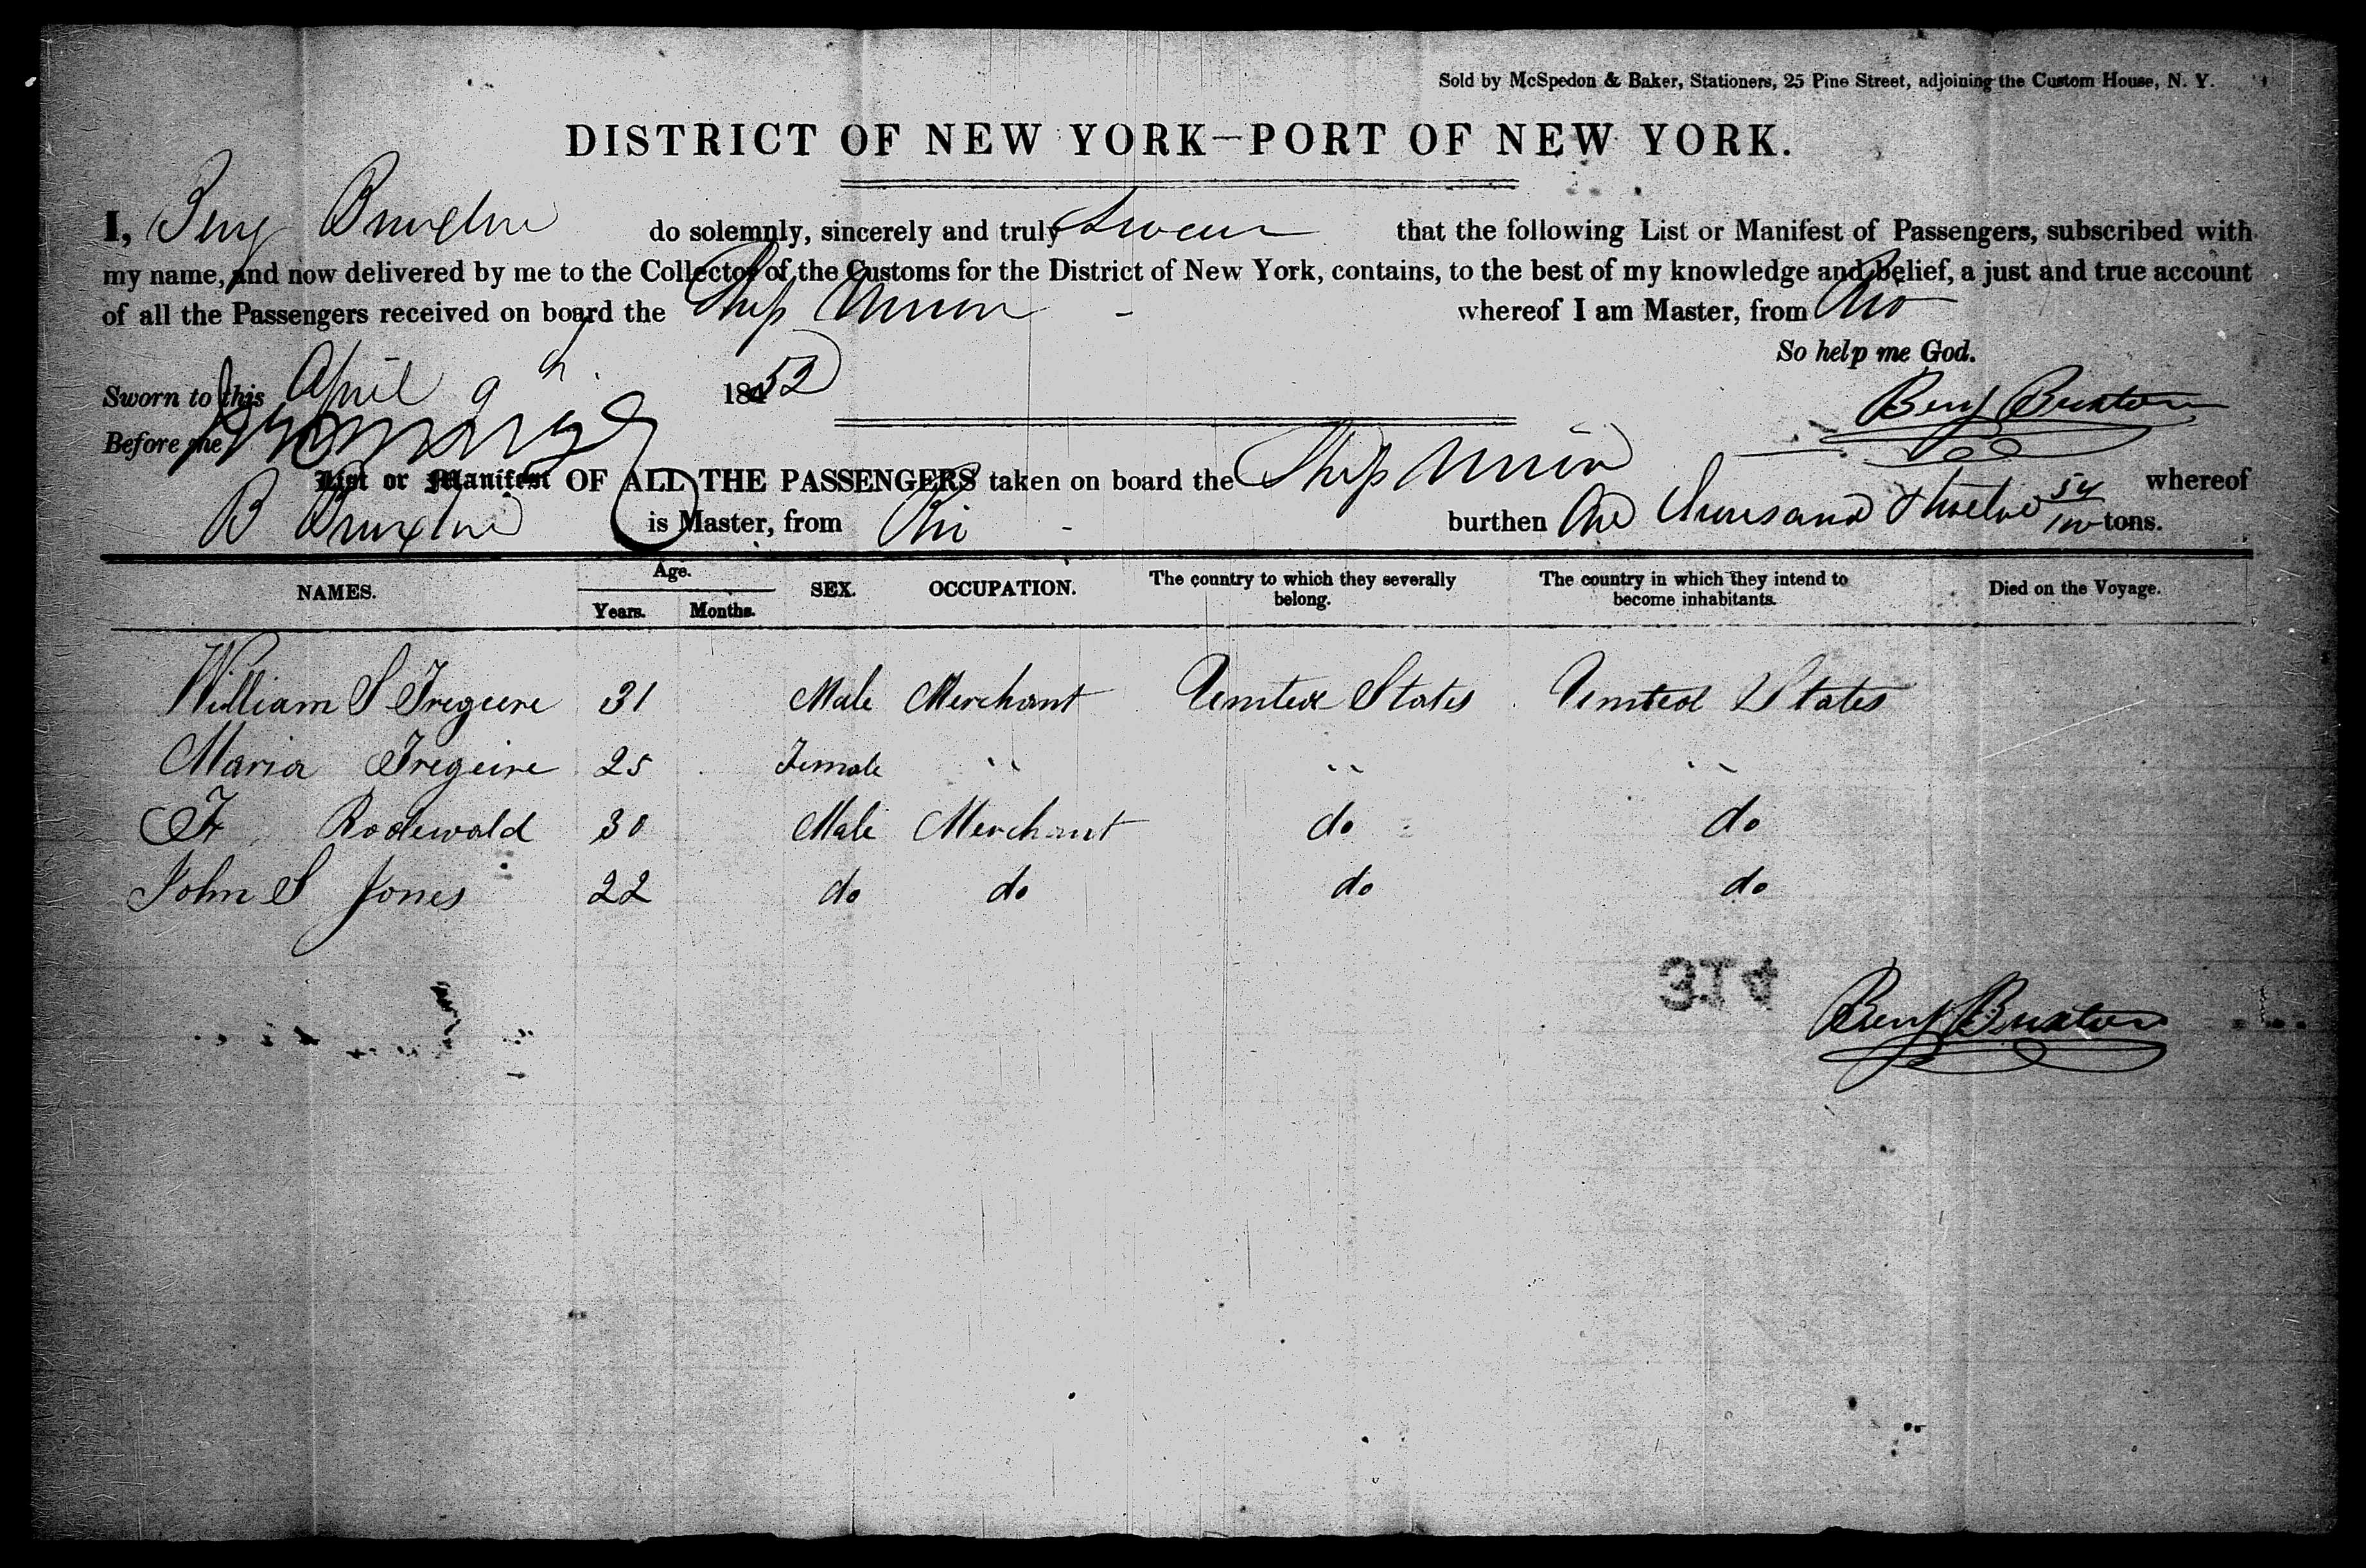 Sold by McSpedon & Baker, Stationers, 25 Pine Street, adjoining the Custom House, N. Y.
DISTRICT OF NEW YORK—PORT OF NEW YORK.
I, Benj Buxton do solemnly, sincerely and truly Swear that the following List or Manifest of Passengers, subscribed with
my name, and now delivered by me to the Collector of the Customs for the District of New York, contains, to the best of my knowledge and belief, a just and true account
of all the Passengers received on board the Ship Union - whereof I am Master, from Rio
So help me God.
Sworn to this April 9th 1852
Benj Buxton
Before me
List or Manifest OF ALL THE PASSENGERS taken on board the Ship Union whereof
B Buxton is Master, from Rio - burthen One Thousand & twelve 54/100 tons.
NAMES. Age. Years. Months. SEX. OCCUPATION. The country to which they severally belong. The country in which they intend to become inhabitants. Died on the Voyage.
William S 31 Male Merchant United States United States
Maria 25 Female " " "
Fr Rodewald 30 Male Merchant do do
John S Jones 22 do do do do
314
Benj Buxton